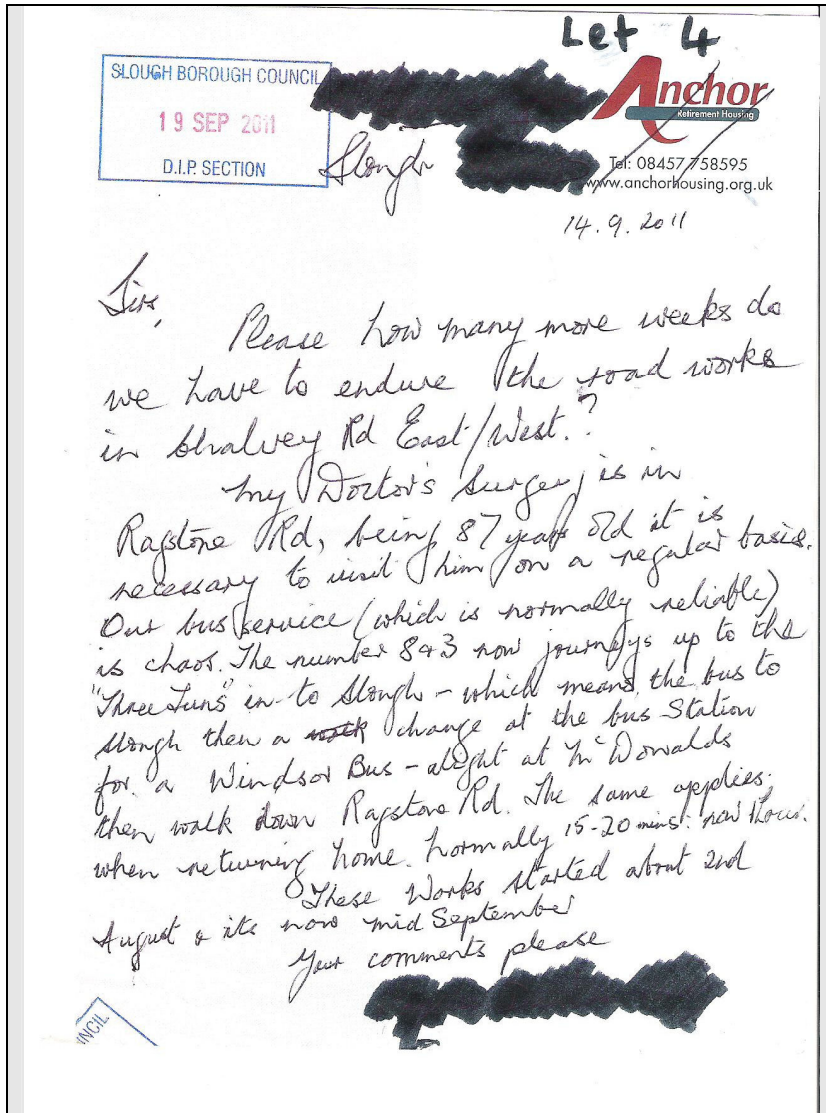 Let 4
SLOUGH BOROUGH COUNCIL
19 SEP 2011
D.I.P. SECTION
Anchor
Retirement Housing
Slough
Tel: 08457 758595
www.anchorhousing.org.uk
14.9.2011
Sir,
Please how many more weeks do
we have to endure the road works
in Chalvey Rd East/West.?
My Doctor's Surgery is in
Ragstone Rd, being 87 years old it is
necessary to visit him on a regular basis.
Our bus service (which is normally reliable)
is chaos. The number 8&3 now journeys up to the
"Three Tuns" in to Slough - which means the bus to
Slough then a walk change at the bus Station
for a Windsor Bus - alight at McDonalds
then walk down Ragstone Rd. The same applies
when returning home. Normally 15-20 mins: now 1hour.
These Works started about 2nd
August & its now mid September
Your comments please
NCIL